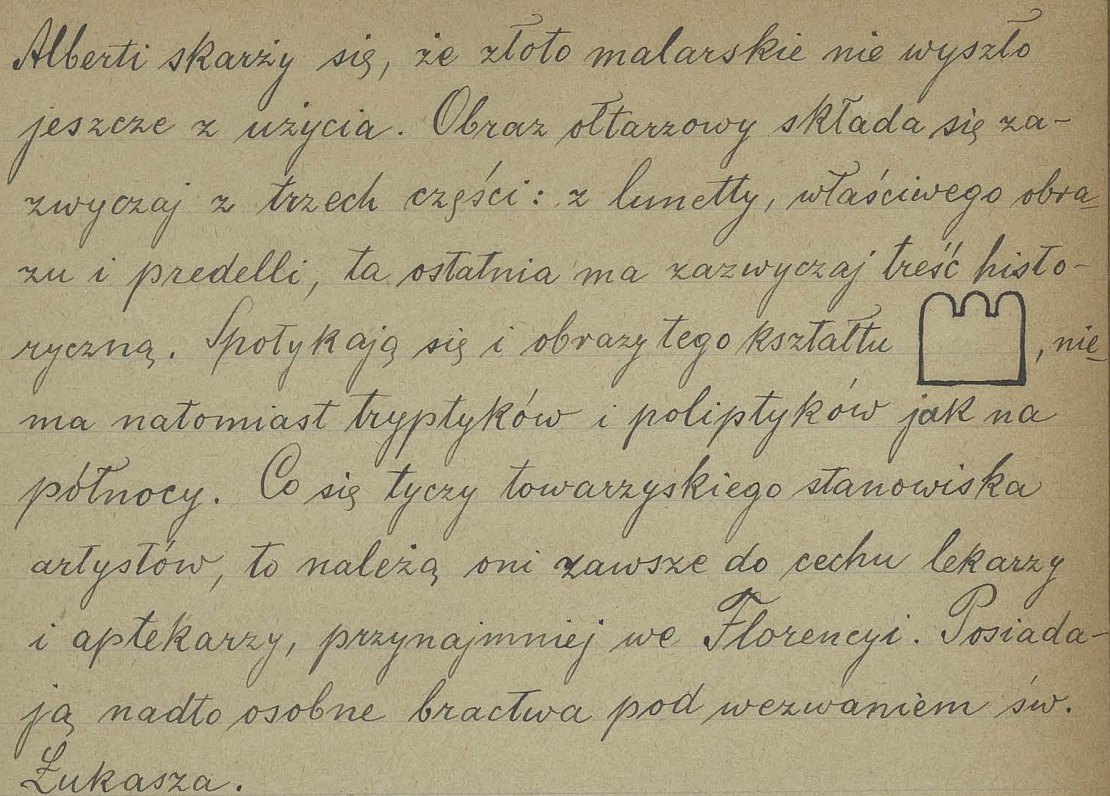 Alberti skarży się, że złoto malarskie nie wyszło
jeszcze z użycia. Obraz ołtarzowy składa się za-
zwyczaj z trzech części: z lunetty, właściwego obra-
zu i predelli, ta ostatnia ma zazwyczaj treść histo-
ryczną. Spotykają się i obrazy tego kształtu , nie-
ma natomiast tryptyków i poliptyków jak na
północy. Co się tyczy towarzyskiego stanowiska
artystów, to należą oni zawsze do cechu lekarzy
i aptekarzy, przynajmniej we Florencyi. Posiada-
ją nadto osobne bractwa pod wezwaniem św.
Łukasza.